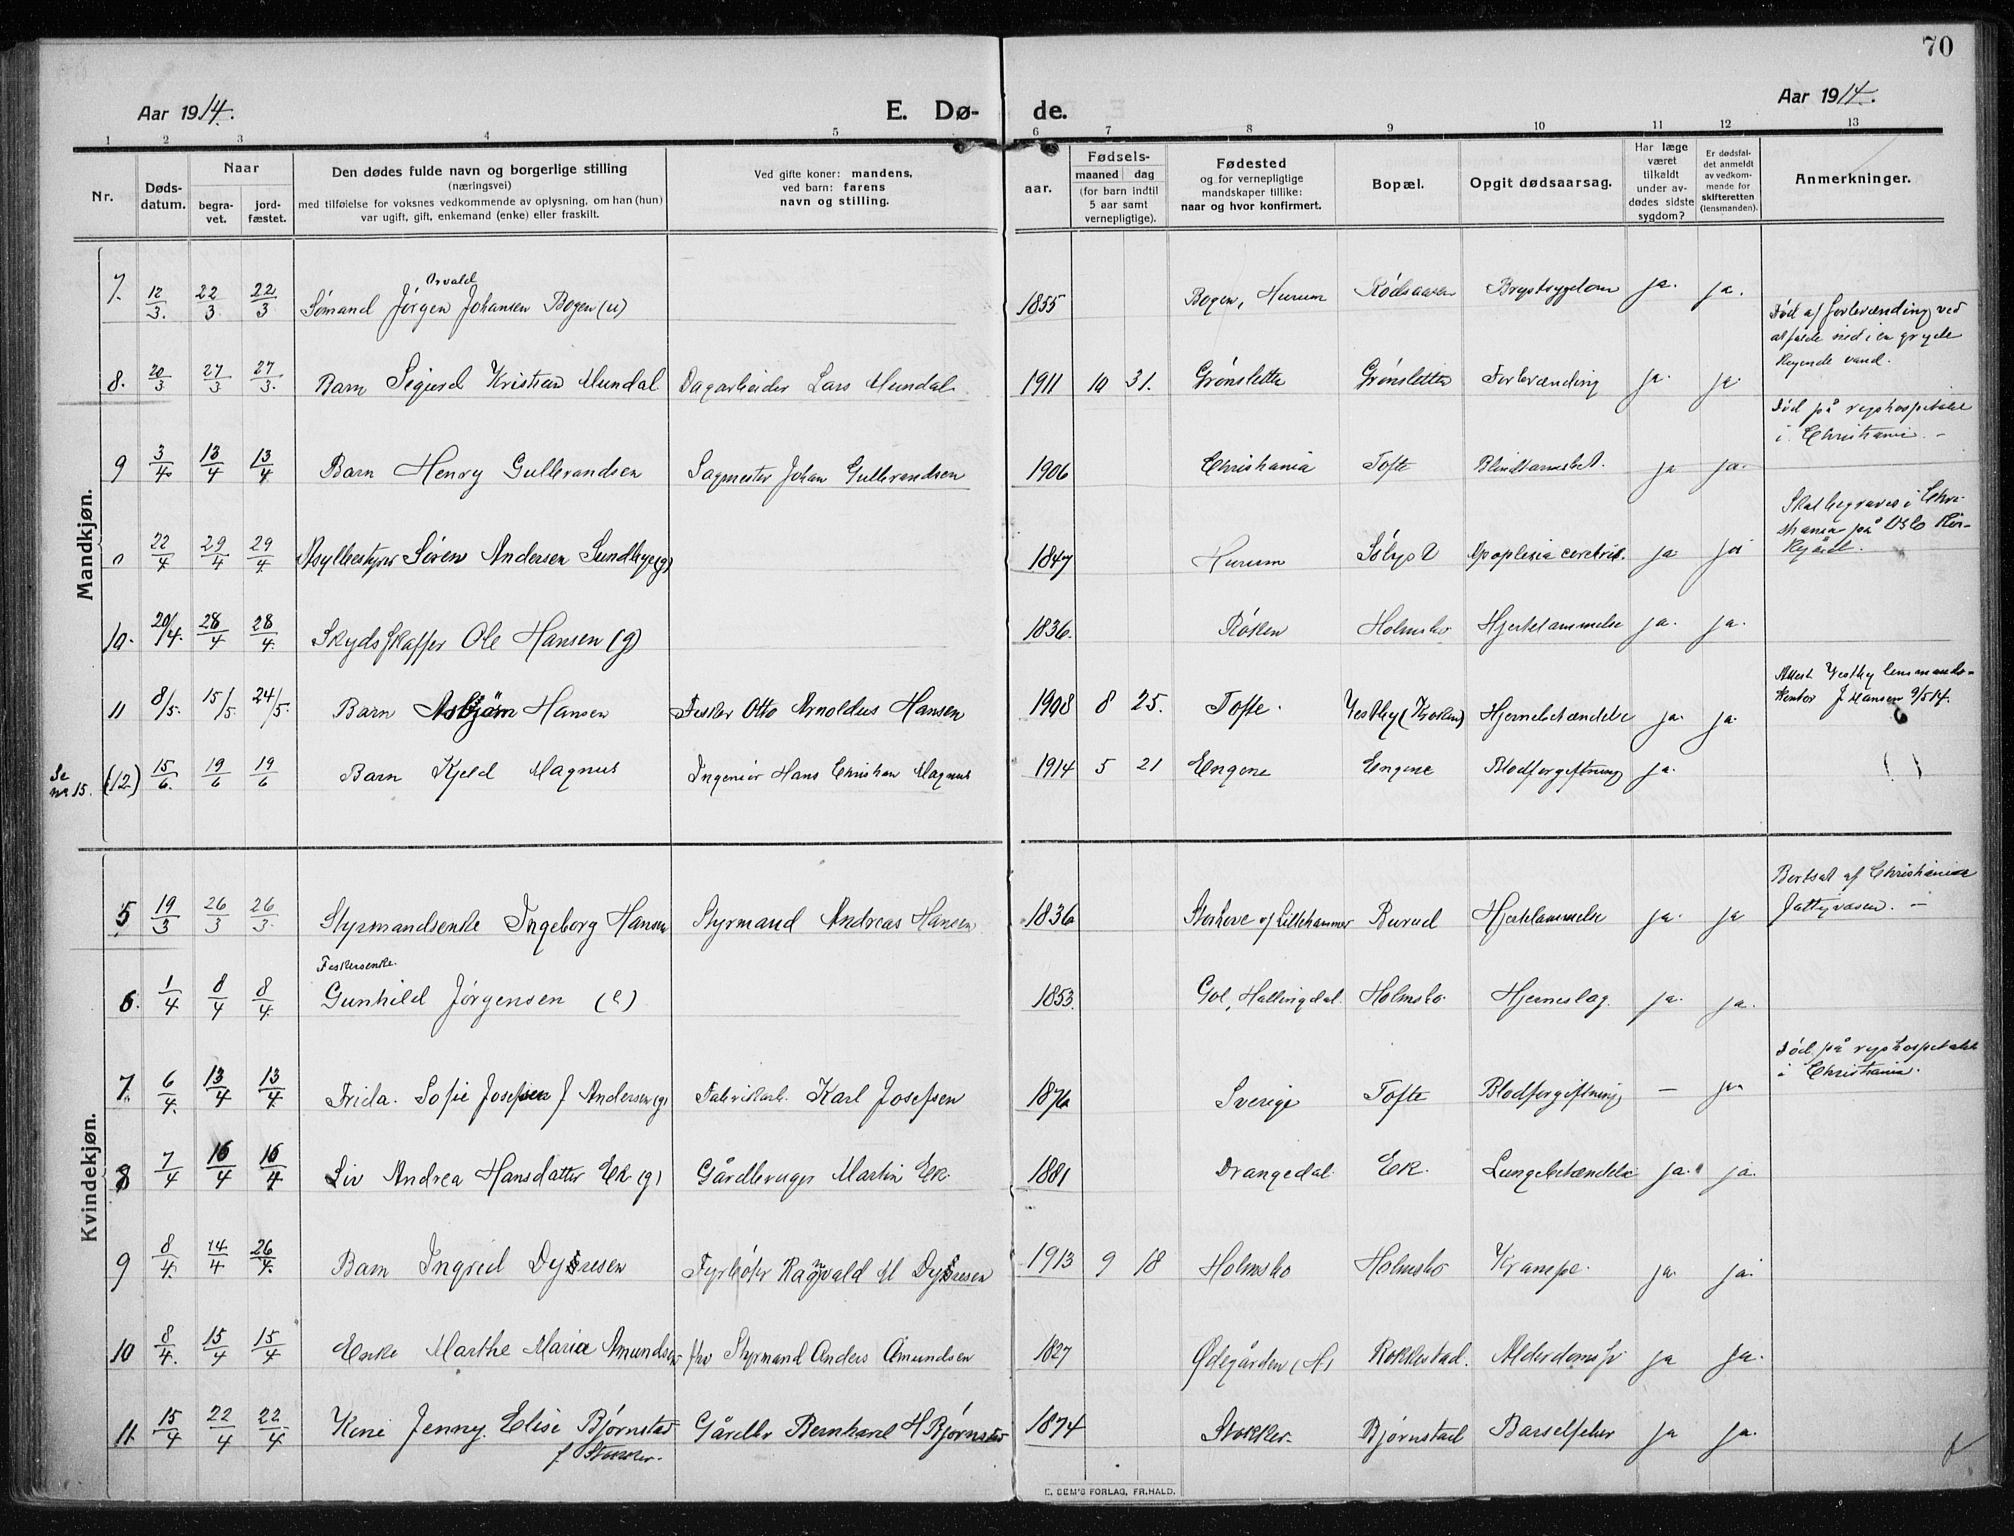 70
Aar 1914.
E. Dø-
de.
Aar 1914.
1 2 3 4 5 6 7 8 9 10 11 12 13
Nr.
Døds-
datum.
Naar
begra-
vet.
jord-
fæstet.
Den dødes fulde navn og borgerlige stilling
(næringsvei)
med tilføielse for voksnes vedkommende av oplysning, om han (hun)
var ugift, gift, enkemand (enke) eller fraskilt.
Ved gifte koner: mandens,
ved barn: farens
navn og stilling.
aar.
Fødsels-
maaned dag
(for barn indtil
5 aar samt
vernepligtige).
Fødested
og for vernepligtige
mandskaper tillike:
naar og hvor konfirmert.
Bopæl.
Opgit dødsaarsag.
Har læge
været
tilkaldt
under av-
dødes sidste
sygdom?
Er dødsfal-
det anmeldt
av vedkom-
mende for
skifteretten
(lensmanden).
Anmerkninger.
Mandkjøn.
Orvald
7. 12/3. 22/3 22/3 Sømand Jørgen Johansen Bogen (u) 1855 Bogen, Hurum Rødsaaren Brystsygdom ja. ja.
Død af forbrænding ved
at falde ned i en gryde
kogende vand.
8. 20/3 27/3 27/3. Barn Sigurd Kristian Mundal Dagarbeider Lars Mundal 1911 10 31. Grønsletta Grønsletta Forbrænding ja. ja
Død på rigshospitalet
i Christiania. –
9 3/4 13/4 13/4 Barn Henry Gulbrandsen Sagmester Johan Gulbrandsen 1906 Christiania Tofte Blindtarmsbet. ja ja.
Skal begraves i Chri-
stiania på Oslo Kir-
kegård.
0 22/4 29/4 29/4 Asylbestyrer Søren Andersen Sundbye (g) 1847 Hurum Apoplexia cerebri. ja ja
10. 20/4. 28/4 28/4. Skydsskaffer Ole Hansen (g) 1836. Røken Holmsbo Hjertelammelse ja. ja.
Attest Vestby lensmands-
kontor J. Hansen 9/5 14.
11 8/5. 15/5 24/5. Barn Asbjørn Hansen Fisker Otto Arnoldus Hansen 1908 8 25. Tofte. Vestby (Kroken) Hjernebetændelse ja. ja.
Se
nr 15. (12) 15/6. 19/6 19/6 Barn Kjeld Magnus Ingeniør Hans Christian Magnus 1914 5 21 Engene Engene Blodforgiftning ja.
Kvindekjøn.
Bortsat af Christiania
Fattigvæsen. –
5 19/3 26/3 26/3. Styrmandsenke Ingeborg Hansen Styrmand Andreas Hansen 1836 Storhove v/ Lillehammer Burud Hjertelammelse ja. ja
Fiskersenke.
6. 1/4 8/4 8/4 Gunhild Jørgensen (e) 1853. Gol, Hallingdal. Holmsbo Hjerneslag. ja. ja.
Død på rigshospitalet
i Christiania.
7. 6/4. 13/4 13/4 Frida. Sofie Josefsen f Andersen (g) Fabrikarb. Karl Josefsen 1876 Sverige Tofte Blodforgiftning – ja
8 7/4 16/4 16/4 Liv Andrea Hansdatter Ek (g) Gårdbruger Martin Ek. 1881 Drangedal Ek. Lungebetændelse ja. ja.
9 8/4. 14/4 26/4. Barn Ingrid Dyresen Fyrbøter Ragnvald M Dyresen 1913 9 18 Holmsbo Holmsbo Krampe. ja. ja.
10 8/4. 15/4 15/4 Enke Marthe Maria Amundsen fhv Styrmand Anders Amundsen 1827 Ødegården (H) Rokkestad. Alderdomssv ja ja.
11. 15/4 22/4 22/4 Kone Jenny Elise Bjørnstad Gårdbr Bernhard H Bjørnstad 1874 Stokker. Bjørnstad Barselfeber ja ja.
f Stokker.
E. SEM'S FORLAG, FR.HALD.